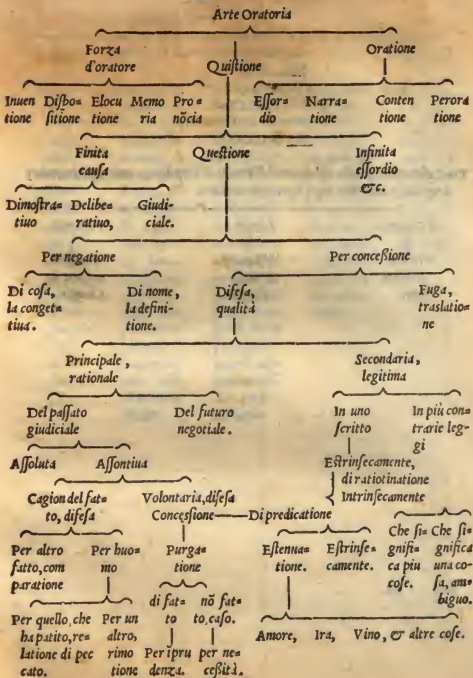 Arte Oratoria
Forza
d'oratore
Quiſtione
Oratione
Inuen
tione
Diſpo=
ſitione
Elocu
tione
Memo
ria
Pro=
nōcia
Eſſor=
dio
Narra=
tione
Conten
tione
Perora
tione
Finita
cauſa
Queſtione
Infinita
eſſordio
&c.
Dimoſtra=
tiuo
Delibe=
ratiuo,
Giudi=
ciale.
Per negatione
Per conceßione
Di coſa,
la conget=
tiua.
Di nome,
la defini=
tione.
Difeſa,
qualità
Fuga,
traslatio=
ne
Principale,
rationale
Secondaria,
legitima
Del paſſato
giudiciale
Del futuro
negotiale.
In uno
ſcritto
In più con=
trarie leg=
gi
Aſſoluta
Aſſontiua
Eſtrinſecamente,
di ratiotinatione
Intrinſecamente
Cagion del fat=
to, difeſa
Volontaria, difeſa
Conceſſione
Di predicatione
Per altro
fatto, com
paratione
Per huo=
mo
Purga=
tione
Eſtenua=
tione.
Eſtrinſe=
camente.
Che ſi=
gnifi=
ca piu
coſe.
Che ſi=
gnifica
una co=
ſa, am=
biguo.
Per quello, che
ha patito, re=
latione di pec
cato.
Per un
altro,
rimo
tione
di fat=
to
nō fat=
to, caſo.
Per īpru
denza.
per ne=
ceßità.
Amore, Ira, Vino, & altre coſe.